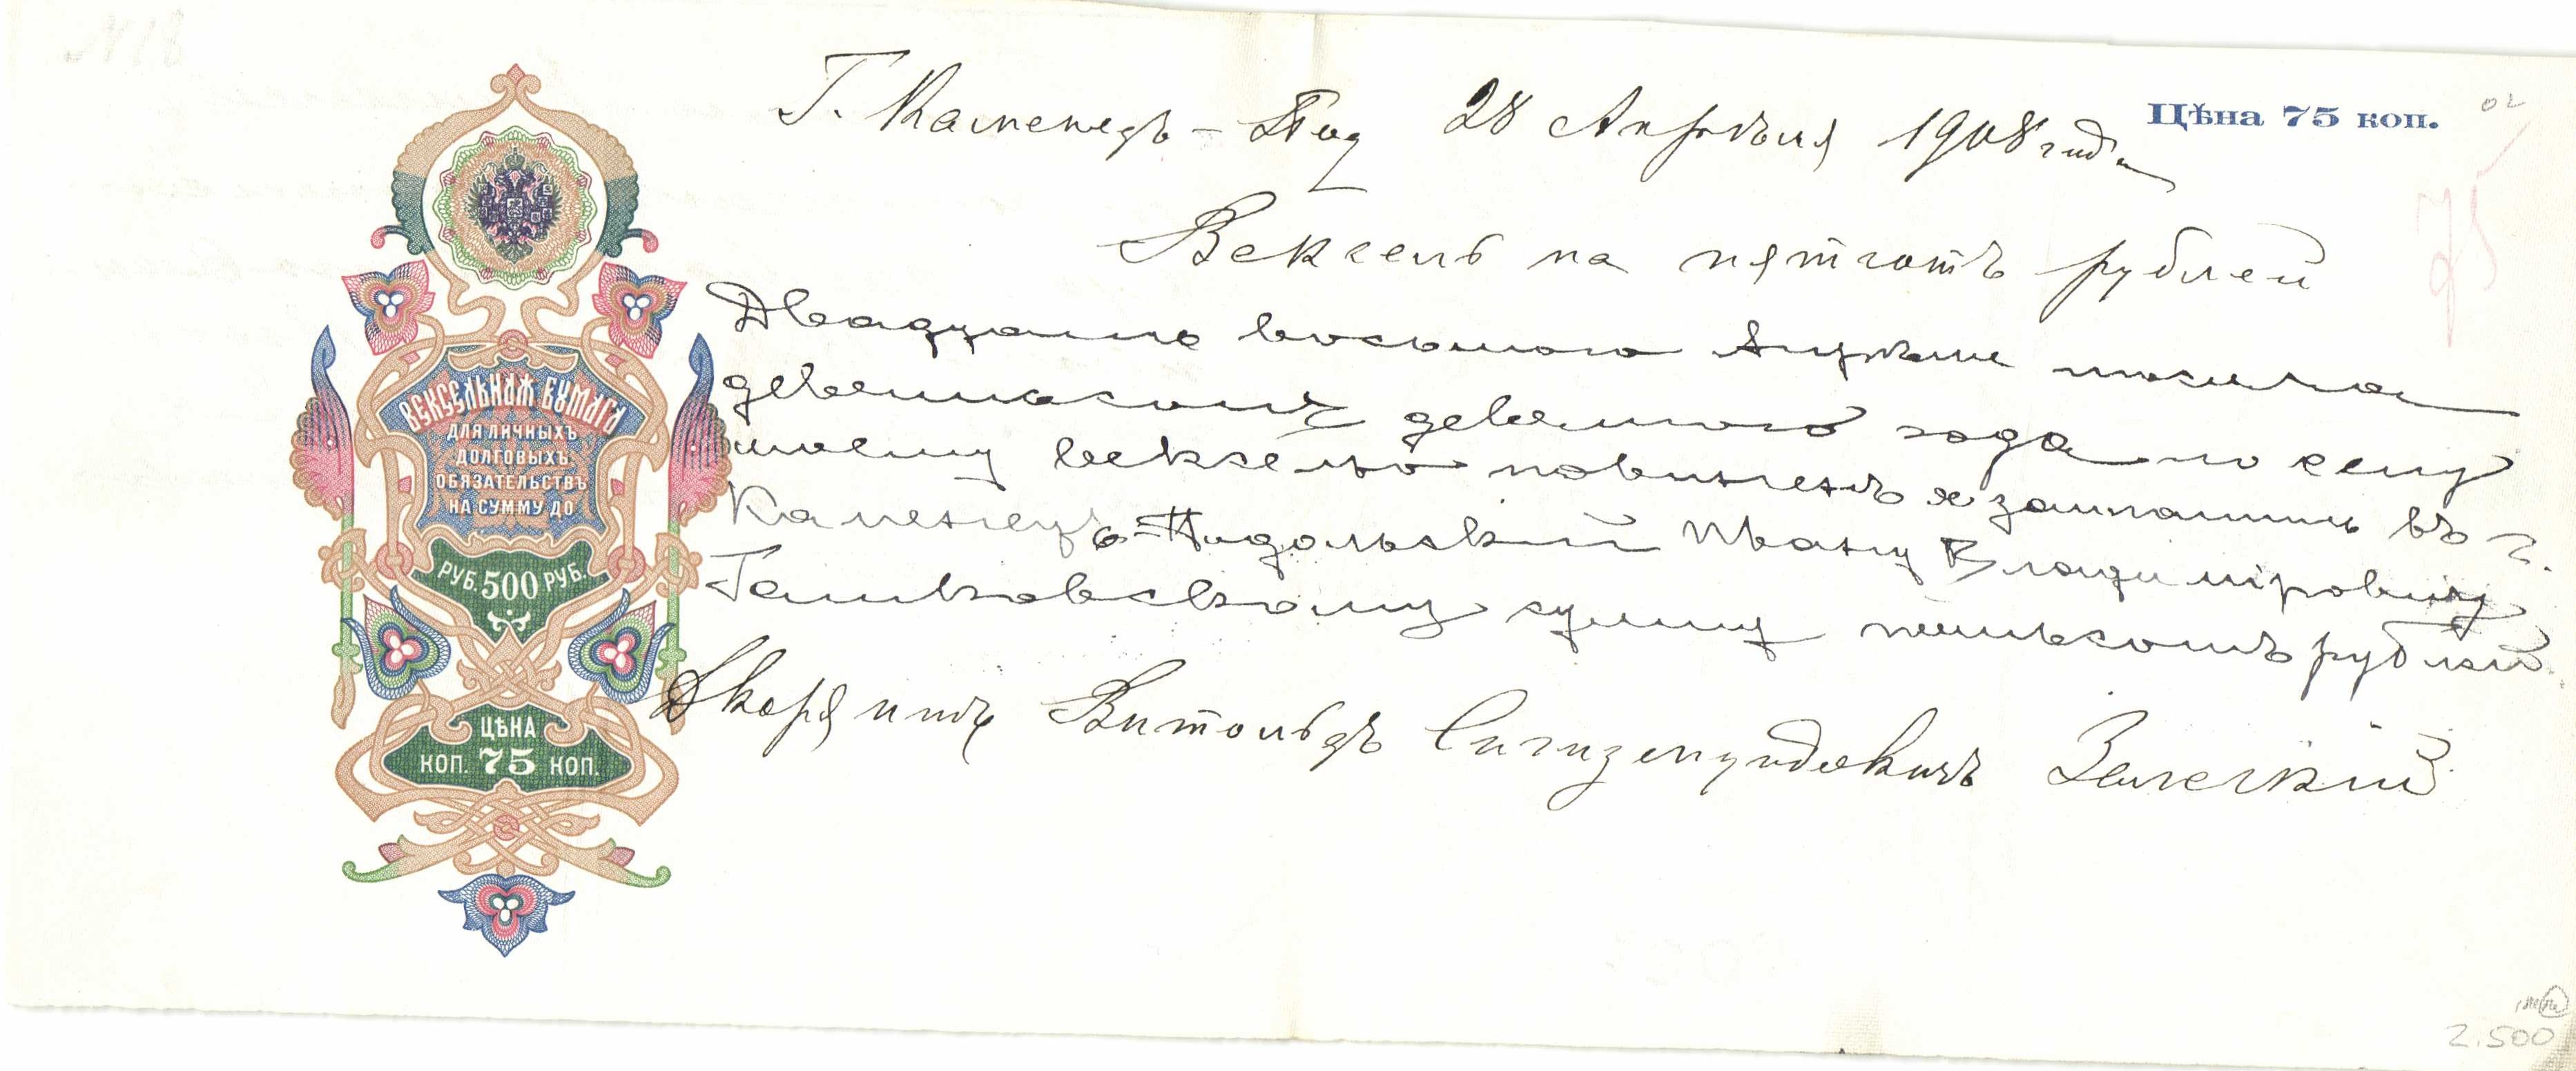 Г. Каменецъ-Под 28 Апрѣля 1908 года
Цѣна 75 коп.
75
Вексель на пятсотъ рублей
Двадцать восьмого Апрѣля тысяча
девятьсотъ девятого года по сему
моему векселю повиненъ я заплатить въ г.
Каменецъ-Подольскій Ивану Владиміровичу
сумму пятьсотъ рублей
Дворянинъ Витольдъ Сигизмундовичъ
ВЕКСЕЛЬНАЯ БУМАГА
ДЛЯ ЛИЧНЫХЪ
ДОЛГОВЫХЪ
ОБЯЗАТЕЛЬСТВЪ
НА СУММУ ДО
РУБ. 500 РУБ.
ЦѢНА
КОП. 75 КОП.
2.500